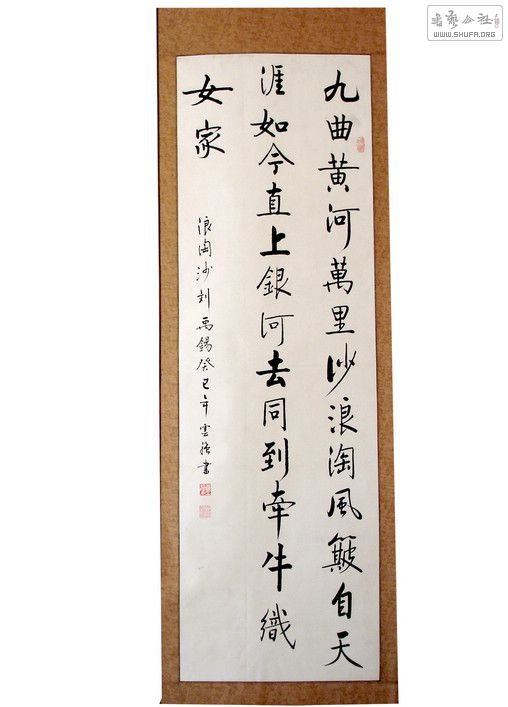 九曲黄河萬里沙浪淘風簸自天
涯如今直上銀河去同到牽牛織
女家
浪淘沙刘禹錫癸巳年雲强書
WWW.SHUFA.ORG